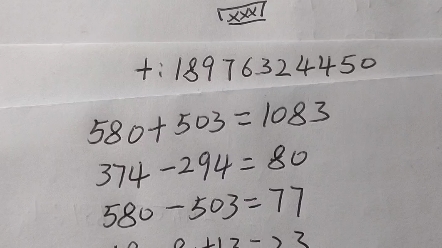 xxx
t:18976324450
580+503=1083
374-294=80
580-503=77